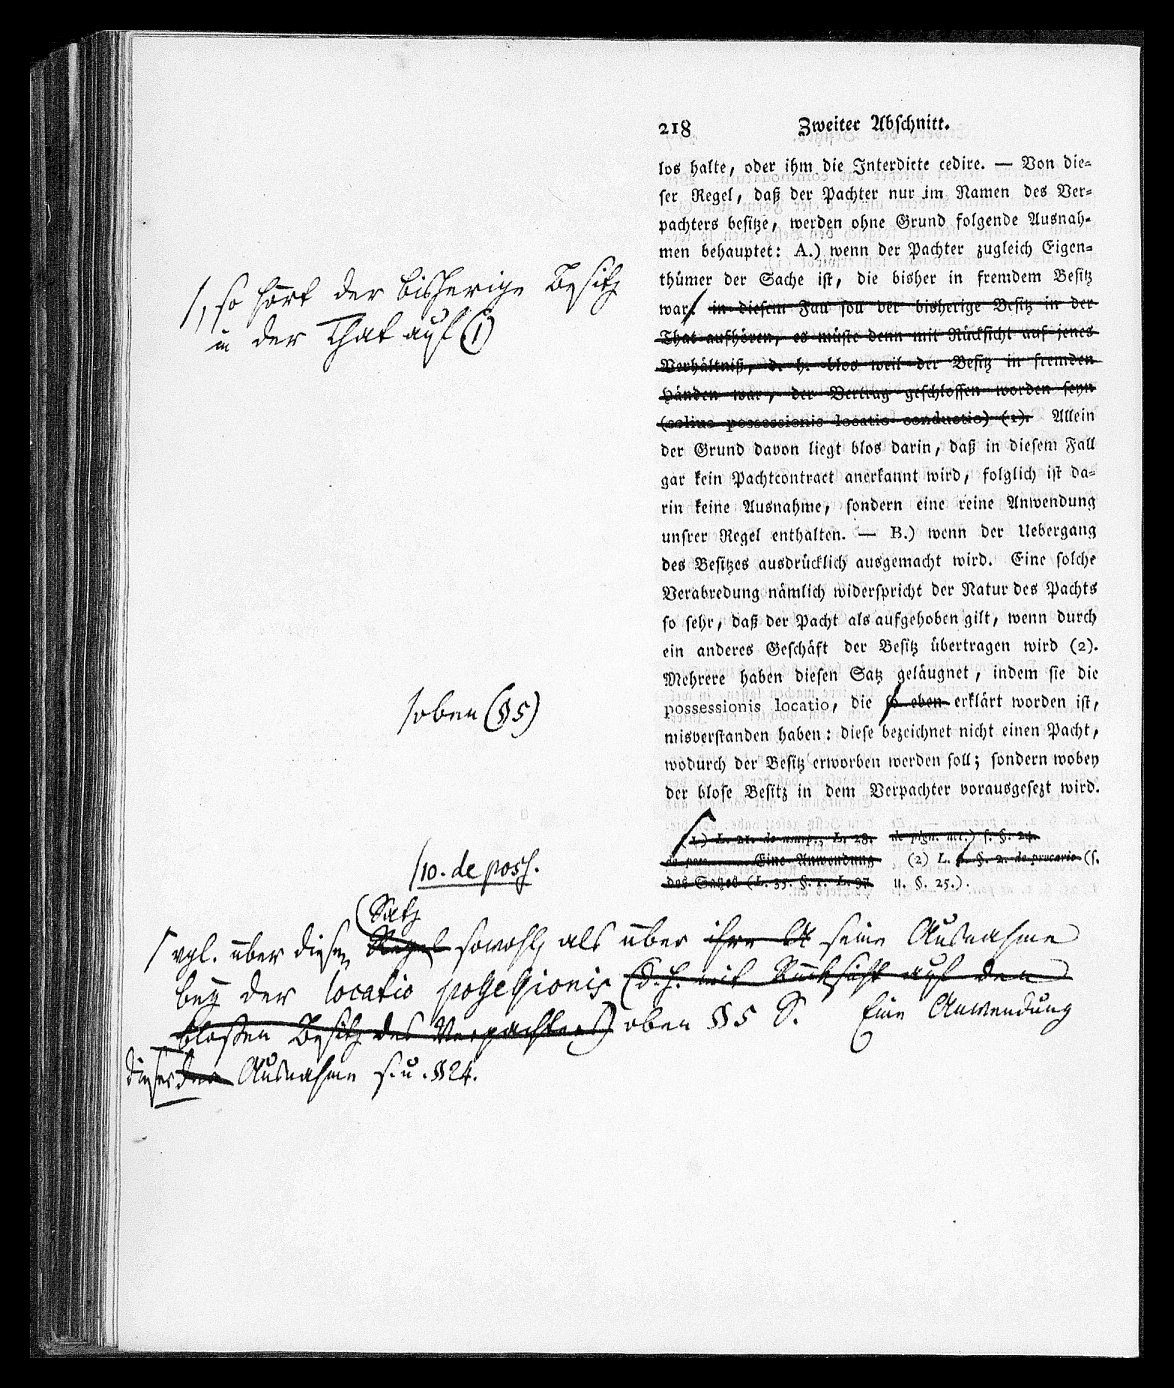 218 Zweiter Abschnitt.
los halte, oder ihm die Interdicte cedire. — Von die-
ser Regel, daß der Pachter nur im Namen des Ver-
pachters besitze, werden ohne Grund folgende Ausnah-
men behauptet: A.) wenn der Pachter zugleich Eigen-
thümer der Sache ist, die bisher in fremdem Besitz
war. in diesem Fall soll der bisherige Besitz in der
That aufhören, es müste denn mit Rücksicht auf jenes
Verhältniß, d. h. blos weil der Besitz in fremden
Händen war, der Vertrag geschlossen worden seyn
(solius possessionis locatio conductio) (1). Allein
der Grund davon liegt blos darin, daß in diesem Fall
gar kein Pachtcontract anerkannt wird, folglich ist da-
rin keine Ausnahme, sondern eine reine Anwendung
unsrer Regel enthalten. — B.) wenn der Uebergang
des Besitzes ausdrücklich ausgemacht wird. Eine solche
Verabredung nämlich widerspricht der Natur des Pachts
so sehr, daß der Pacht als aufgehoben gilt, wenn durch
ein anderes Geschäft der Besitz übertragen wird (2).
Mehrere haben diesen Satz geläugnet, indem sie die
possessionis locatio, die so eben erklärt worden ist,
misverstanden haben: diese bezeichnet nicht einen Pacht,
wodurch der Besitz erworben werden soll; sondern wobey
der blose Besitz in dem Verpachter vorausgesezt wird.
(1) L. 21. de usurp., L. 28.
Eine Anwendung
des Satzes (L. 35. §. 1. L. 37
de pign. act.) s. §. 24.
(2) L. §. 2. de precario (s.
u. §. 25.).
/, so hört der bisherige Besitz
in der That auf (1)
/oben (§ 5)
/10. de poss.
Satz
/ vgl. über diesen Regel sowohl, als über ihre A seine Ausnahme
bey der locatio possessionis (d. h. mit Rücksicht auf den
bloßen Besitz des Verpachters) oben § 5 S. Eine Anwendung
dieser der Ausnahme s. u. § 24.